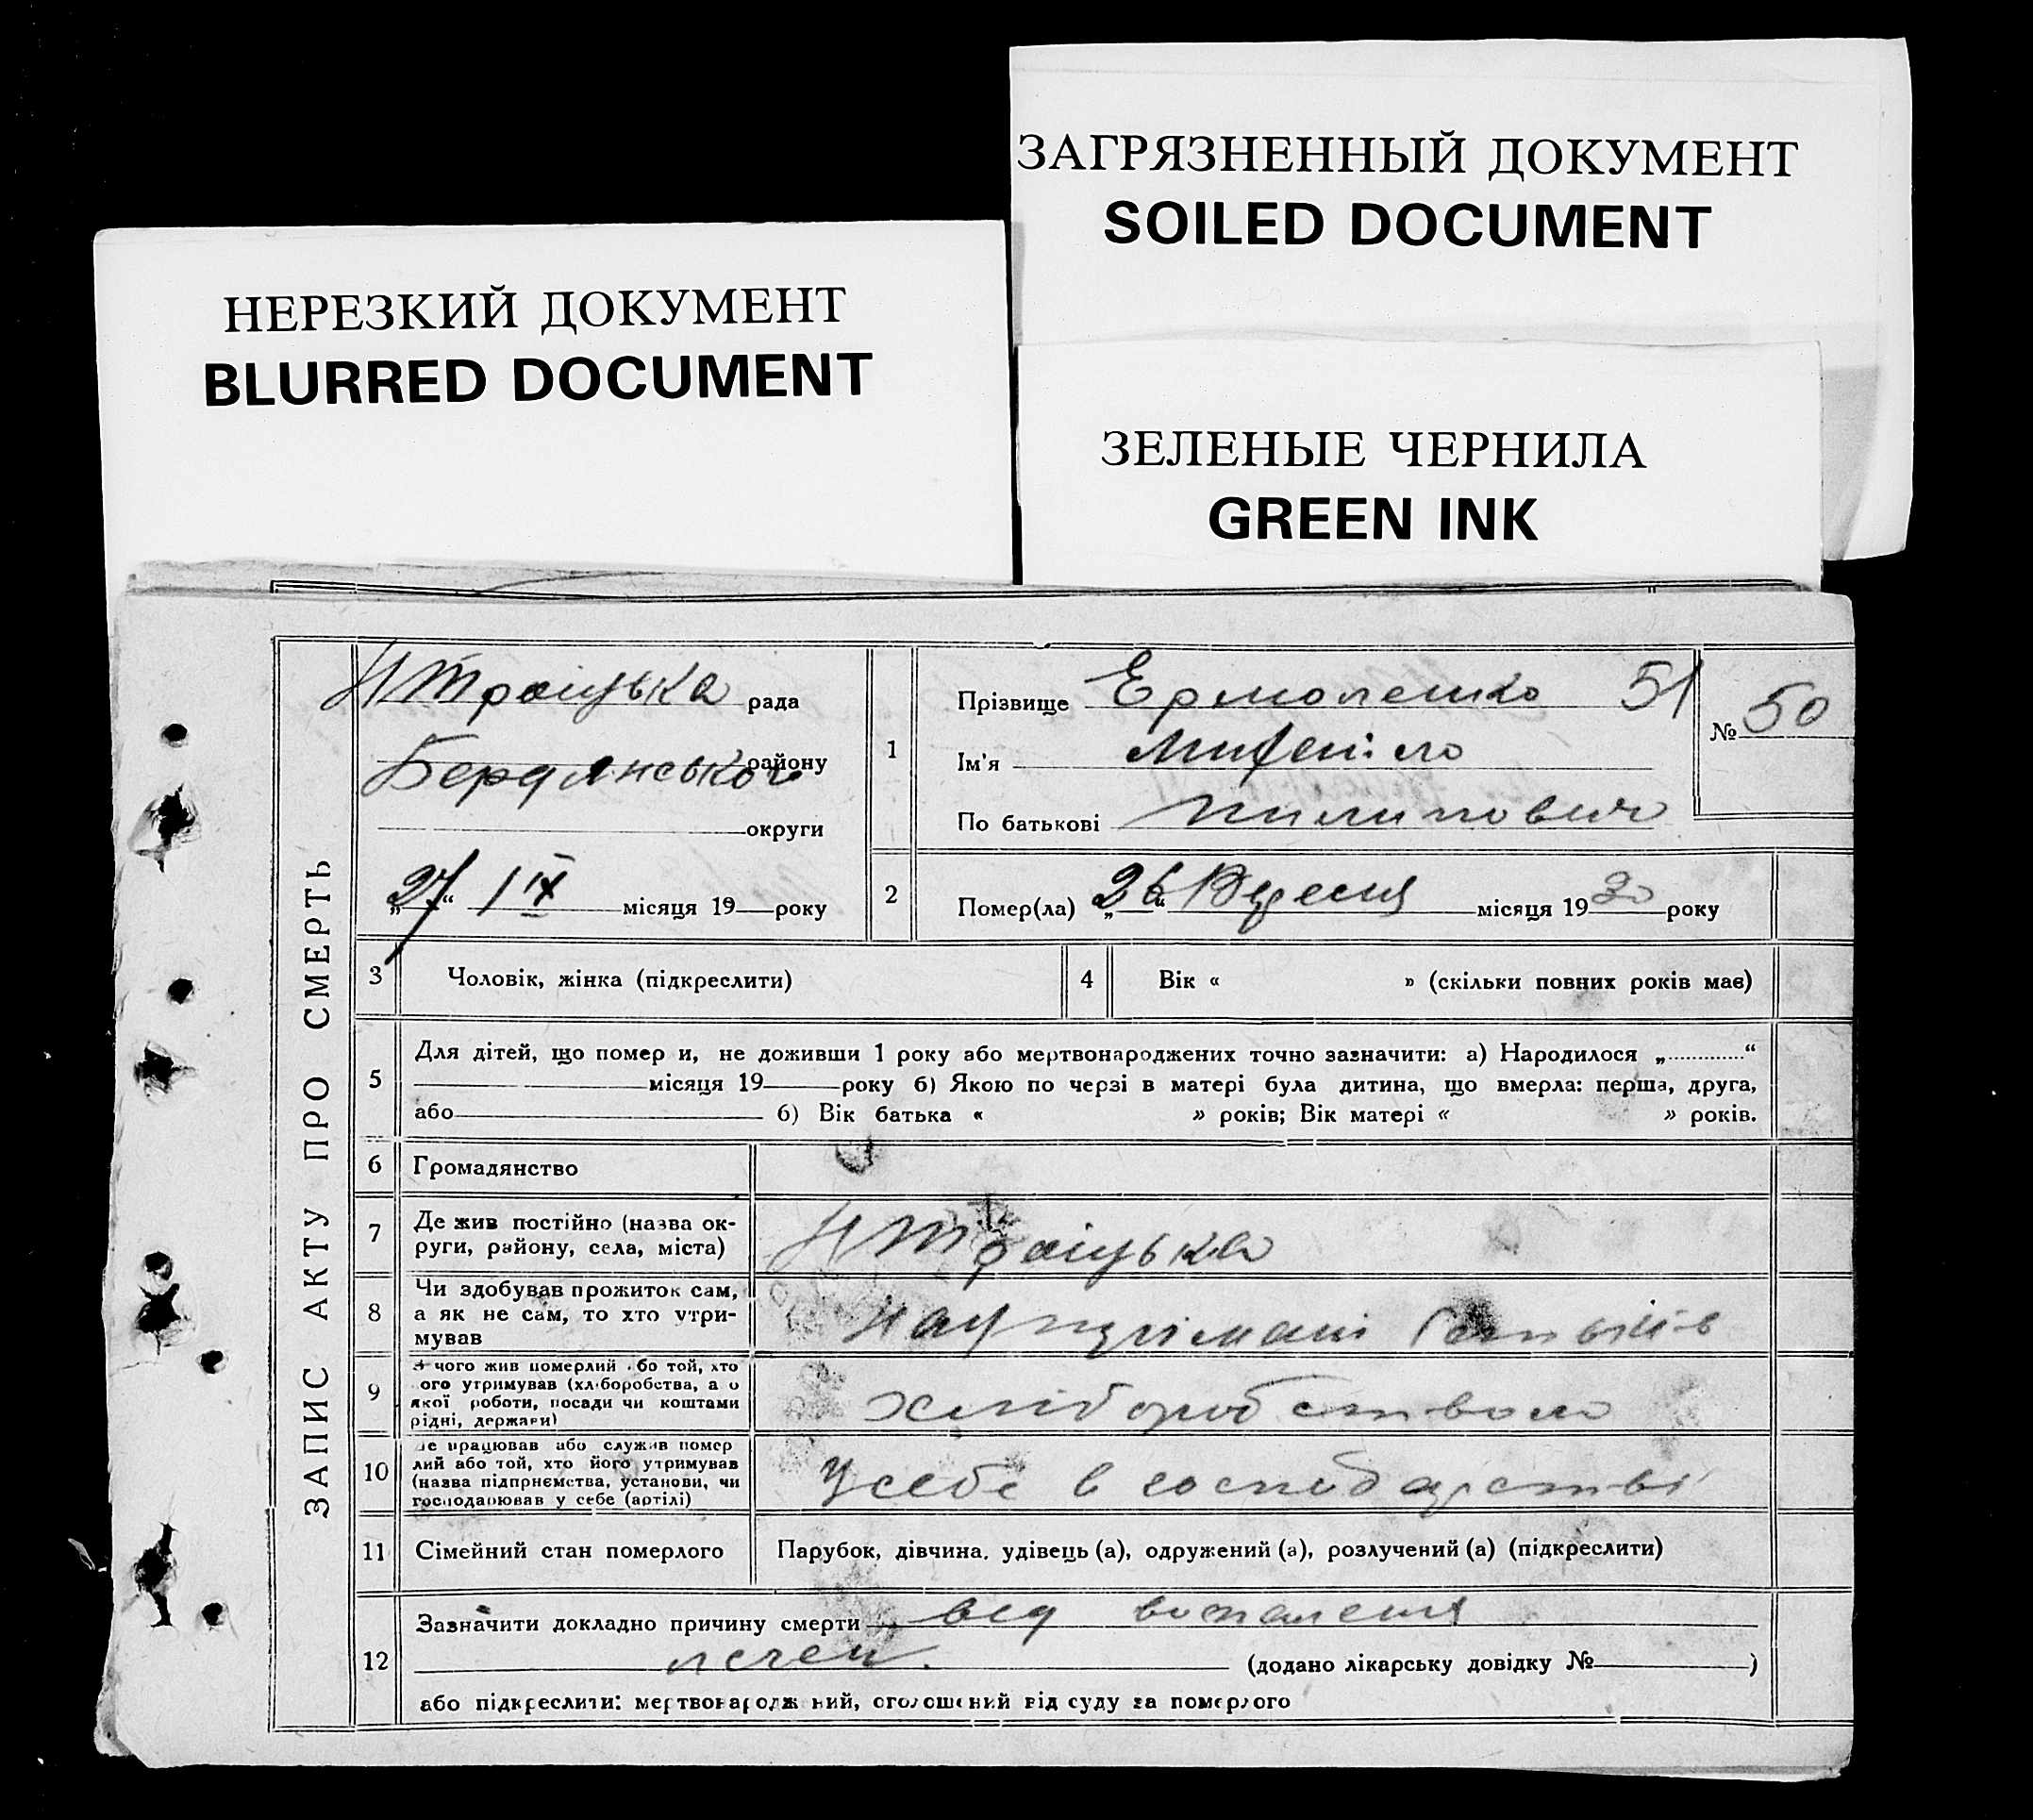 ЗАГРЯЗНЕННЫЙ ДОКУМЕНТ
SOILED DOCUMENT
НЕРЕЗКИЙ ДОКУМЕНТ
BLURRED DOCUMENT
ЗЕЛЕНЫЕ ЧЕРНИЛА
GREEN INK
ЗАПИС АКТУ ПРО СМЕРТЬ
Н Троіцька рада
Бердянського району
округи
„27“ IX місяця 19 року
1
Прізвище Ермоленко 51
Ім'я
По батькові Пилипович
№ 50
2
Помер(ла) „26“ Вересня місяця 1930 року
3 Чоловік, жінка (підкреслити)
4 Вік « » (скільки повних років має)
5
Для дітей, що помер и, не доживши 1 року або мертвонароджених точно зазначити: а) Народилося „ “
місяця 19 року б) Якою по черзі в матері була дитина, що вмерла: перша, друга,
або б) Вік батька « » років; Вік матері « » років.
6 Громадянство
7 Де жив постійно (назва ок-
руги, району, села, міста)
Н Троіцька
8 Чи здобував прожиток сам,
а як не сам, то хто утри-
мував
батьків
9 чого жив померлий бо той, хто
ого утримував (хліборобства, а о
якої роботи, посади чи коштами
рідні, держави)
хліборобством
10 е працював або служив помер
лий або той, хто його утримував
(назва підпрнємства, установи, чи
господарював у себе (артілі)
У себе в господарстві
11 Сімейний стан померлого
Парубок, дівчина, удівець (а), одружений (а), розлучений (а) (підкреслити)
12
Зазначити докладно причину смерти від воспаления
печен. (додано лікарську довідку № )
або підкреслити: мертвонародж ний, оголошений від суду за померлого